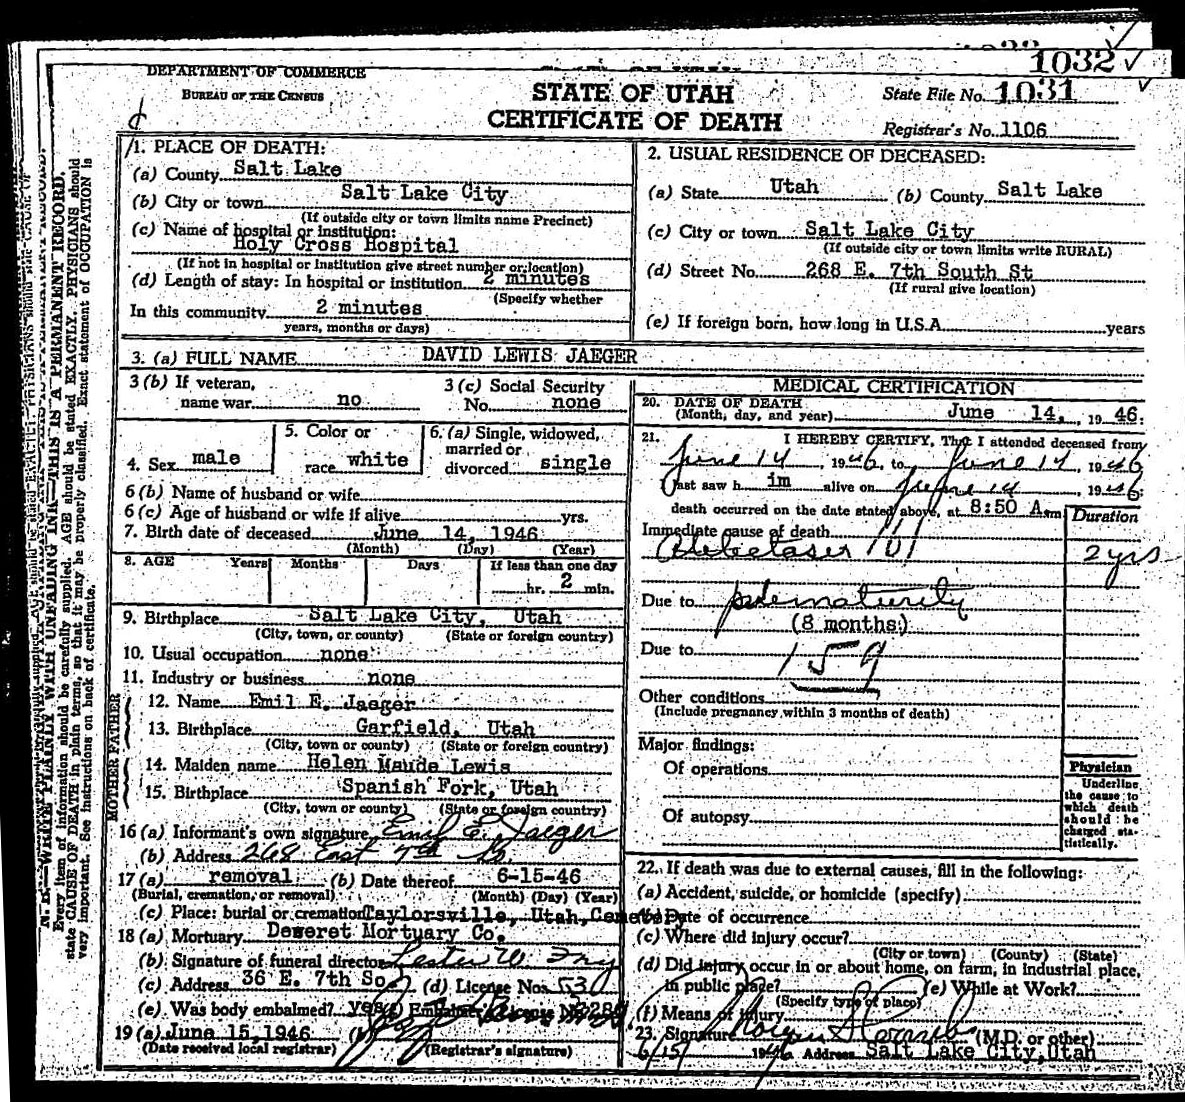 1032
DEPARTMENT OF COMMERCE
BUREAU OF THE CENSUS
STATE OF UTAH
CERTIFICATE OF DEATH
State File No. 1031
Registrar's No. 1106
1. PLACE OF DEATH:
(a) County Salt Lake
(b) City or town Salt Lake City
(If outside city or town limits name Precinct)
(c) Name of hospital or institution:
Holy Cross Hospital
(If not in hospital or institution give street number or location)
(d) Length of stay: In hospital or institution 2 minutes
(Specify whether
In this community 2 minutes
years, months or days)
2. USUAL RESIDENCE OF DECEASED:
(a) State Utah (b) County Salt Lake
(c) City or town Salt Lake City
(If outside city or town limits write RURAL)
(d) Street No. 268 E. 7th South St
(If rural give location)
(e) If foreign born, how long in U.S.A. years
3. (a) FULL NAME DAVID LEWIS JAEGER
3 (b) If veteran, name war no
3 (c) Social Security No. none
4. Sex male
5. Color or race white
6. (a) Single, widowed, married or divorced single
6 (b) Name of husband or wife
6 (c) Age of husband or wife if alive yrs.
7. Birth date of deceased June 14, 1946
(Month) (Day) (Year)
8. AGE Years Months Days If less than one day
hr. 2 min.
9. Birthplace Salt Lake City, Utah
(City, town, or county) (State or foreign country)
10. Usual occupation none
11. Industry or business none
FATHER
12. Name Emil E. Jaeger
13. Birthplace Garfield, Utah
(City, town or county) (State or foreign country)
MOTHER
14. Maiden name Helen Maude Lewis
15. Birthplace Spanish Fork, Utah
(City, town or county) (State or foreign country)
16 (a) Informant's own signature Emil E. Jaeger
(b) Address 268 East 7th So.
17 (a) removal (b) Date thereof 6-15-46
(Burial, cremation, or removal) (Month) (Day) (Year)
(c) Place: burial or cremation Taylorsville, Utah, Cemetery
18 (a) Mortuary Deseret Mortuary Co.
(b) Signature of funeral director Lester W.
(c) Address 36 E. 7th So. (d) License No. 530
(e) Was body embalmed? yes (f) Embalmer's License No.
19 (a) June 15, 1946 (b)
(Date received local registrar) (Registrar's signature)
MEDICAL CERTIFICATION
20. DATE OF DEATH
(Month, day, and year) June 14, 1946.
21. I HEREBY CERTIFY, That I attended deceased from
June 14, 1946, to June 14, 1946
last saw him alive on June 14, 1946.
death occurred on the date stated above, at 8:50 A.m
Duration
Immediate cause of death
2 yrs
Due to prematurity
(8 months)
Due to 159
Other conditions
(Include pregnancy within 3 months of death)
Major findings:
Of operations
Of autopsy
Physician
Underline
the cause to
which death
should be
charged sta-
tistically.
22. If death was due to external causes, fill in the following:
(a) Accident, suicide, or homicide (specify)
(b) Date of occurrence
(c) Where did injury occur?
(City or town) (County) (State)
(d) Did injury occur in or about home, on farm, in industrial place,
in public place? (e) While at Work?
(Specify type of place)
(f) Means of injury
23. Signature (M.D. or other)
6/15 1946 Address Salt Lake City, Utah
N. B.—WRITE PLAINLY WITH UNFADING INK—THIS IS A PERMANENT RECORD.
Every item of information should be carefully supplied. AGE should be stated EXACTLY. PHYSICIANS should
state CAUSE OF DEATH in plain terms, so that it may be properly classified. Exact statement of OCCUPATION is
very important. See instructions on back of certificate.